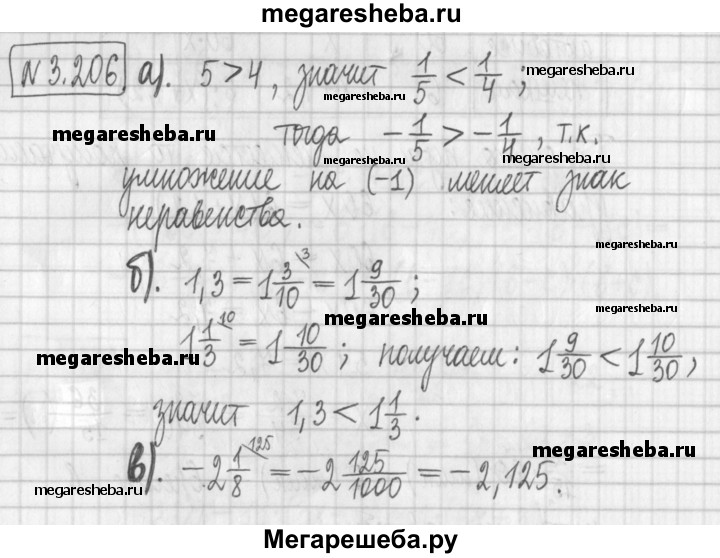 megaresheba.ru
№ 3.206. а). 5 > 4, значит 1/5 < 1/4 ; megaresheba.ru
megaresheba.ru
megaresheba.ru тогда -1/5 > -1/4, т.к.
megaresheba.ru megaresheba.ru
умножение на (-1) меняет знак
неравенства. megaresheba.ru
б). 1,3 = 1 3/10 ^3 = 1 9/30 ;
megaresheba.ru megaresheba.ru
megaresheba.ru 1 1/3 ^10 = 1 10/30 ; получаем: 1 9/30 < 1 10/30,
megaresheba.ru
значит 1,3 < 1 1/3.
megaresheba.ru
в). -2 1/8 ^125 = -2 125/1000 = -2,125.
megaresheba.ru megaresheba.ru
Мегарешеба.ру